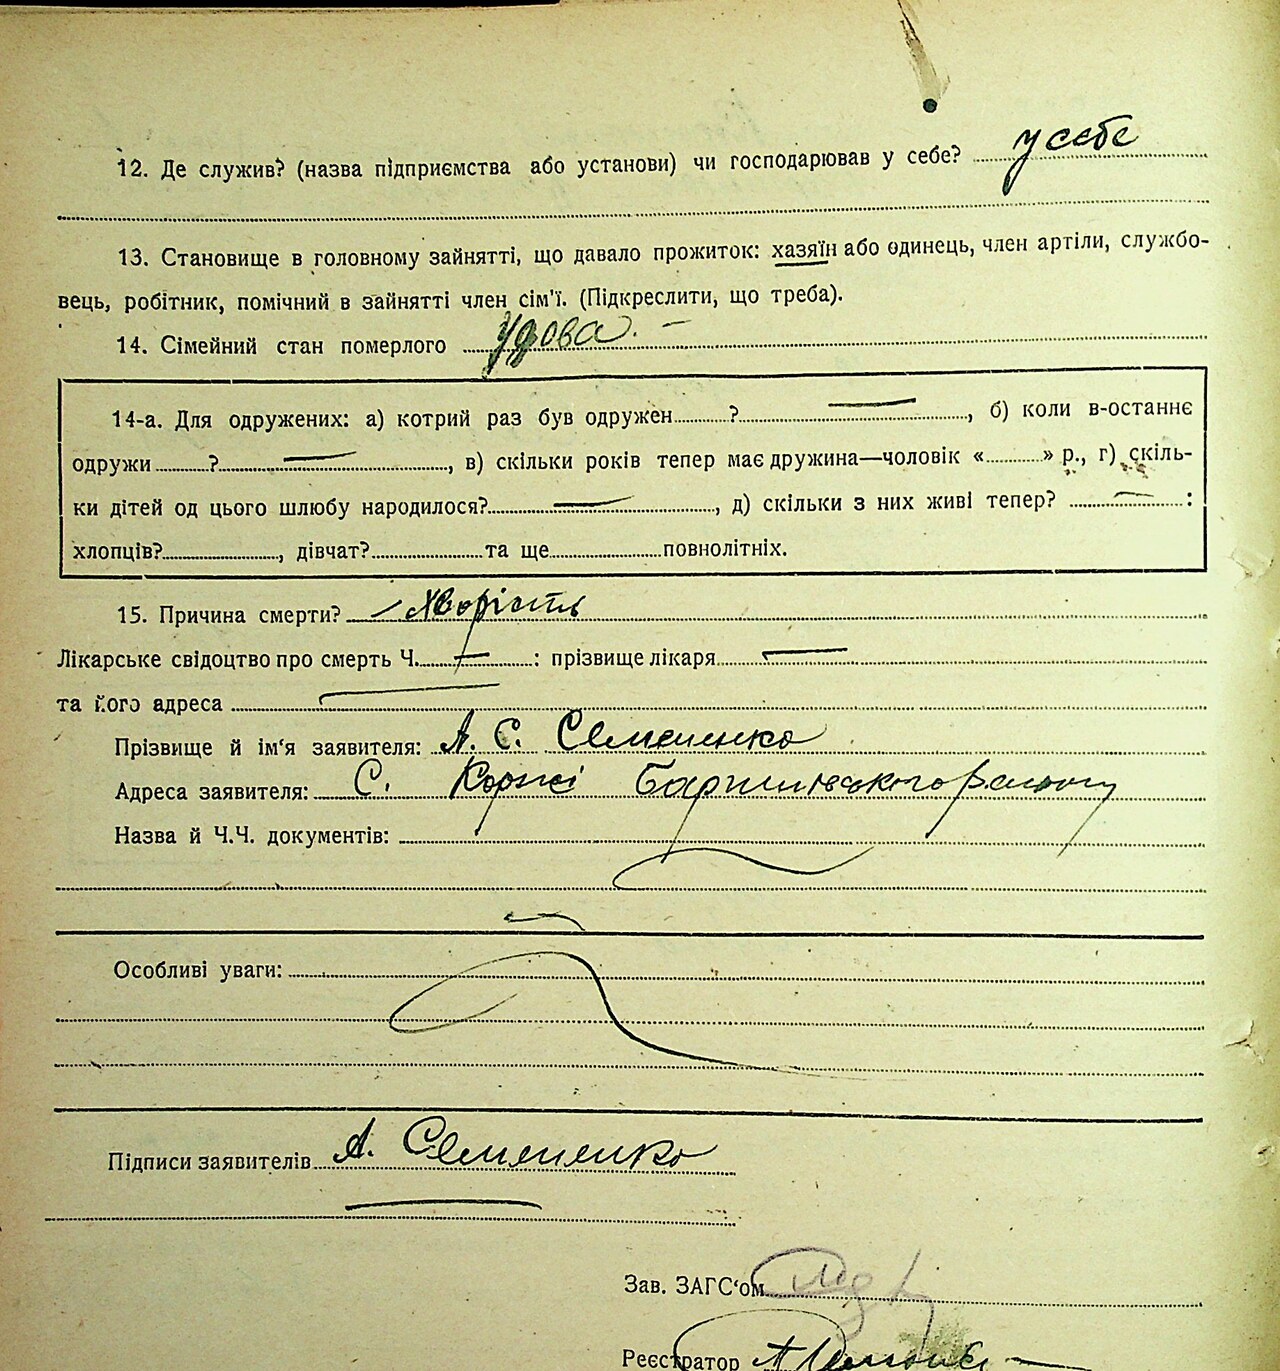 12. Де служив? (назва підприємства або установи) чи господарював у себе? у себе
13. Становище в головному зайнятті, що давало прожиток: хазяїн або одинець, член артіли, службо-
вець, робітник, помічний в зайнятті член сім'ї. (Підкреслити, що треба).
14. Сімейний стан померлого удова. —
14-а. Для одружених: а) котрий раз був одружен ? —, б) коли в-останнє
одружи ? —, в) скільки років тепер має дружина—чоловік « » р., г) скіль-
ки дітей од цього шлюбу народилося? —, д) скільки з них живі тепер? — :
хлопців? , дівчат? та ще повнолітніх.
15. Причина смерти? — хворість
Лікарське свідоцтво про смерть Ч. — : прізвище лікаря —
та його адреса —
Прізвище й ім'я заявителя: А. С. Семененко
Адреса заявителя: С. Коржі Баришівського району
Назва й Ч.Ч. документів:
Особливі уваги:
Підписи заявителів А. Семененко
Зав. ЗАГС'ом
Реєстратор